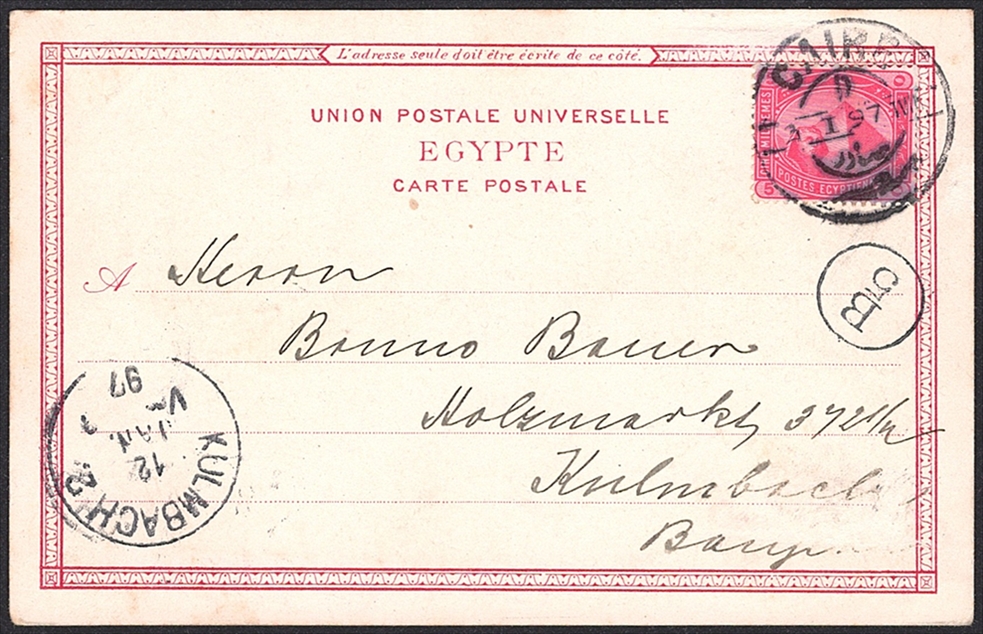 L'adresse seule doit être écrite de ce côté.
CAIRE
D
I 97
CINQ MILLIEMES
5
POSTES EGYPTIENNES
UNION POSTALE UNIVERSELLE
EGYPTE
CARTE POSTALE
A Herrn
Benno Bauer
Holzmarkt, 372 1/2
Kulmbach
Bayern
B5
KULMBACH
12
JAN.
V
97